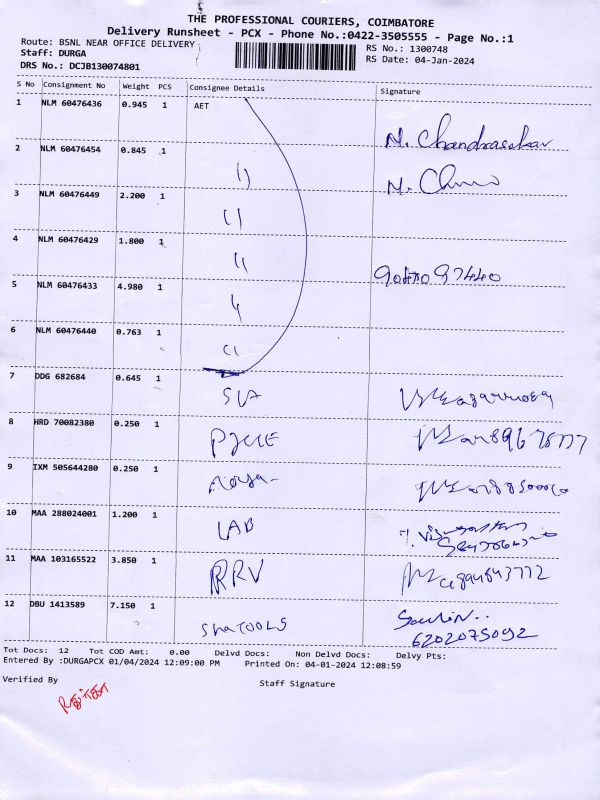 THE PROFESSIONAL COURIERS, COIMBATORE
Delivery Runsheet - PCX - Phone No.:0422-3505555 - Page No.:1
Route: BSNL NEAR OFFICE DELIVERY
RS No.: 1300748
Staff: DURGA
RS Date: 04-Jan-2024
DRS No.: DCJB130074801
S No Consignment No Weight PCS Consignee Details Signature
1 NLM 60476436 0.945 1 AET N. Chandrasekar
2 NLM 60476454 0.845 1 11
3 NLM 60476449 2.200 1 11
4 NLM 60476429 1.800 1 11
5 NLM 60476433 4.980 1 11
6 NLM 60476440 0.763 1 11
7 DDG 682684 0.645 1
8 HRD 70082380 0.250 1
9 IXM 505644280 0.250 1
10 MAA 288024001 1.200 1 LAB
11 MAA 103165522 3.850 1 RRV
12 DBU 1413589 7.150 1
6202075092
Tot Docs: 12 Tot COD Amt: 0.00 Delvd Docs: Non Delvd Docs: Delvy Pts:
Entered By :DURGAPCX 01/04/2024 12:09:00 PM Printed On: 04-01-2024 12:08:59
Verified By
Staff Signature